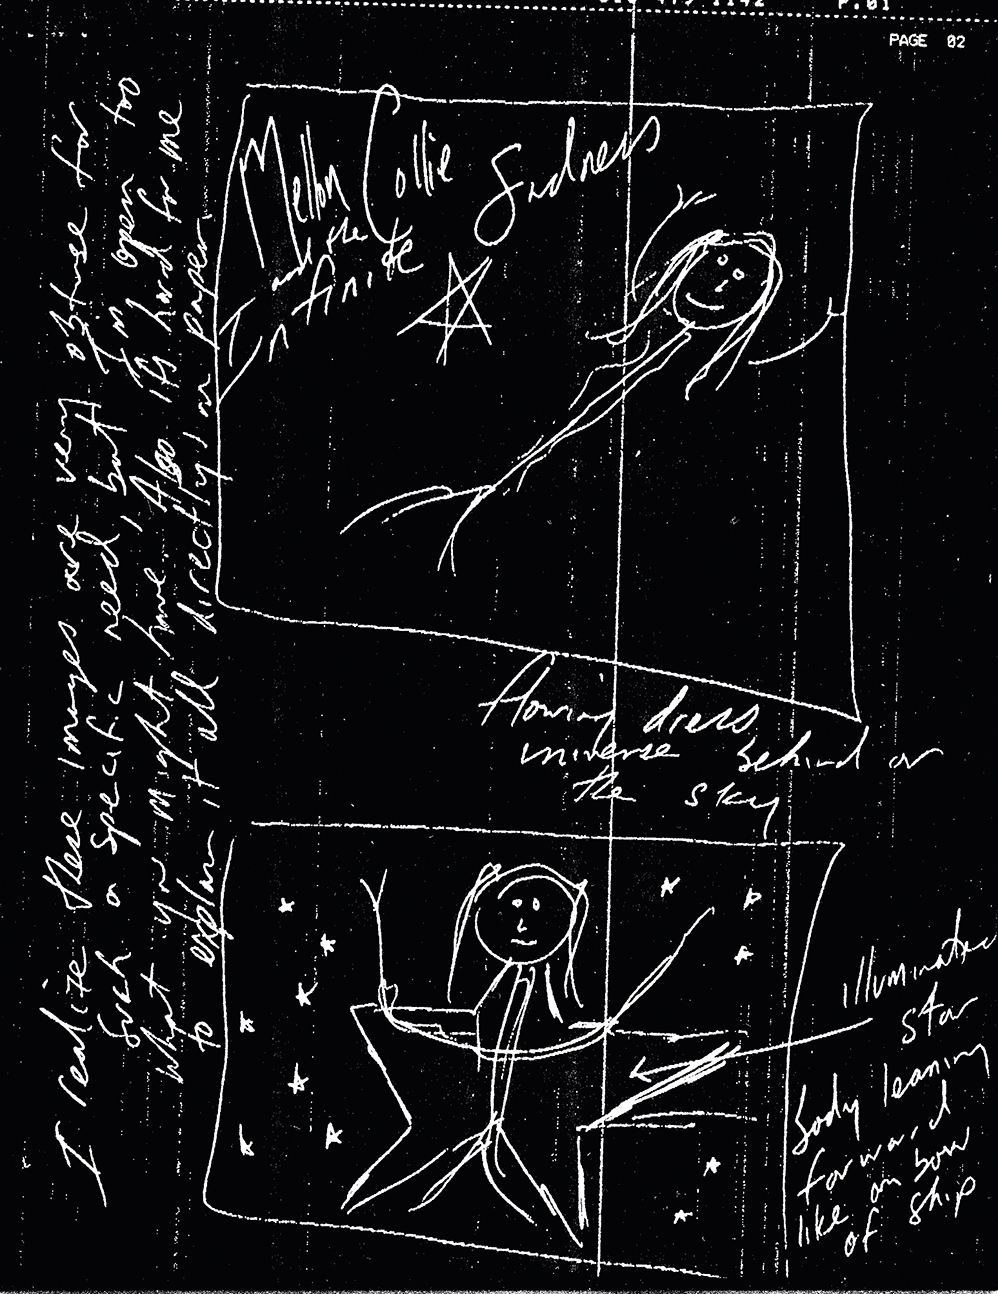 P.01
PAGE 02
Mellon Collie
and the
Infinite
Sadness
Flowing dress
universe behind or
the sky
illuminated
star
body leaning
forward
like on bow
of ship
I realize these images are very obtuse for
such a specific need, but I'm open too
what you might have. Also its hard for me
to explain it all directly, on paper.